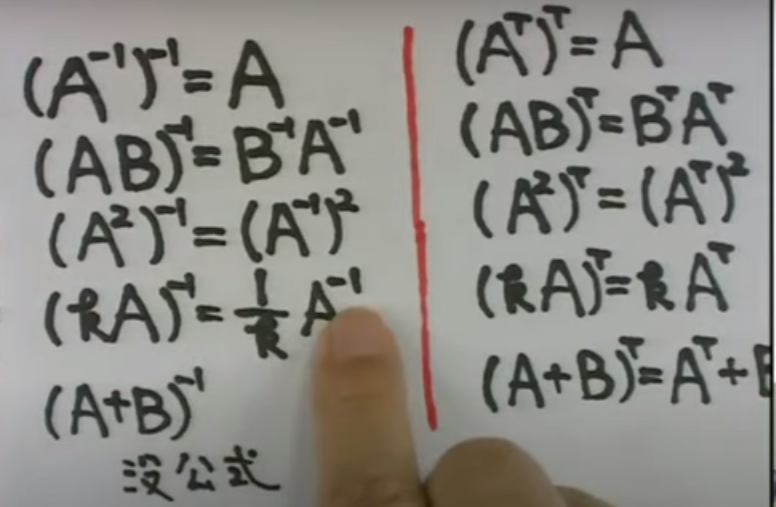 (A⁻¹)⁻¹ = A
(AB)⁻¹ = B⁻¹A⁻¹
(A²)⁻¹ = (A⁻¹)²
(kA)⁻¹ = 1/k A⁻¹
(A+B)⁻¹
没公式
(Aᵀ)ᵀ = A
(AB)ᵀ = BᵀAᵀ
(A²)ᵀ = (Aᵀ)²
(kA)ᵀ = kAᵀ
(A+B)ᵀ = Aᵀ + B